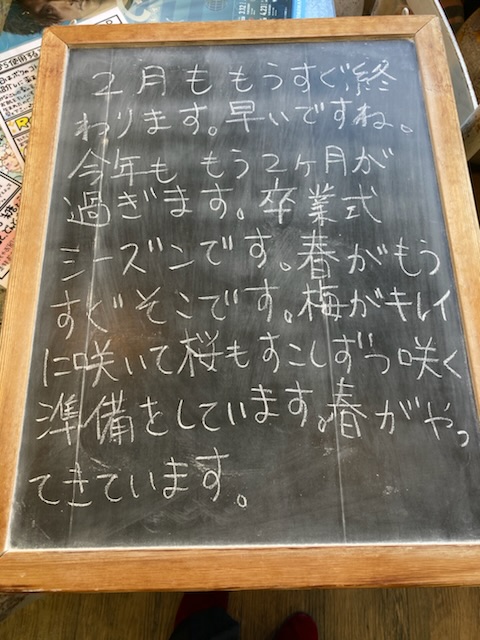 2月ももうすぐ終
わります。早いですね。
今年も もう2ヶ月が
過ぎます。卒業式
シーズンです。春がもう
すぐそこです。梅がキレイ
に咲いて桜もすこしずつ咲く
準備をしています。春がやっ
てきています。